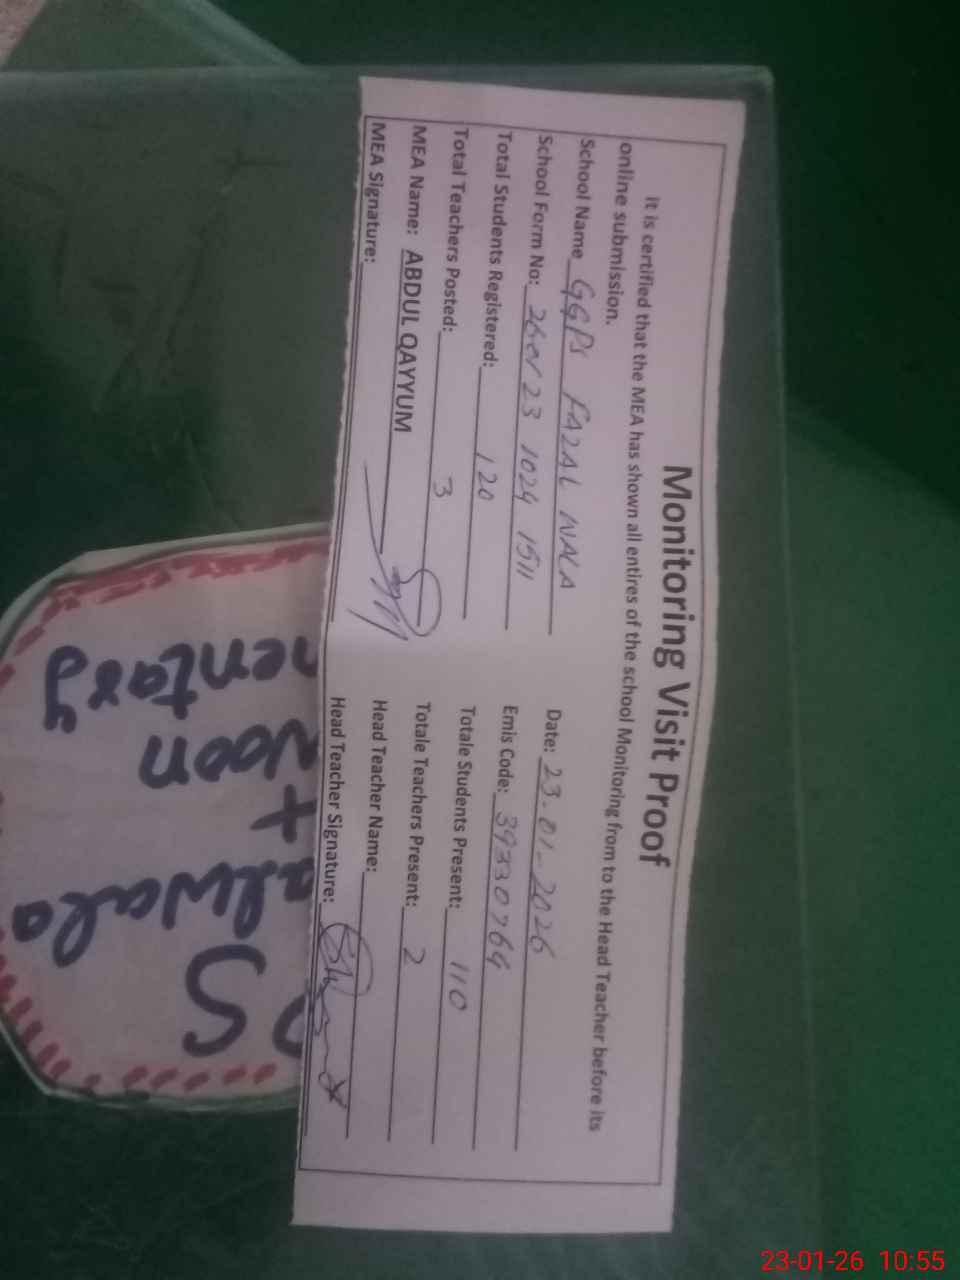 Monitoring Visit Proof
It is certified that the MEA has shown all entires of the school Monitoring from to the Head Teacher before its
online submission.
School Name GGPS FAZAL WALA
Date: 23-01-2026
School Form No: 23 1024 1511
Emis Code: 39330764
Total Students Registered: 120
Totale Students Present: 110
Total Teachers Posted: 3
Totale Teachers Present: 2
MEA Name: ABDUL QAYYUM
Head Teacher Name:
MEA Signature:
Head Teacher Signature:
PS
alwala
+
Noon
mentary
23-01-26 10:55